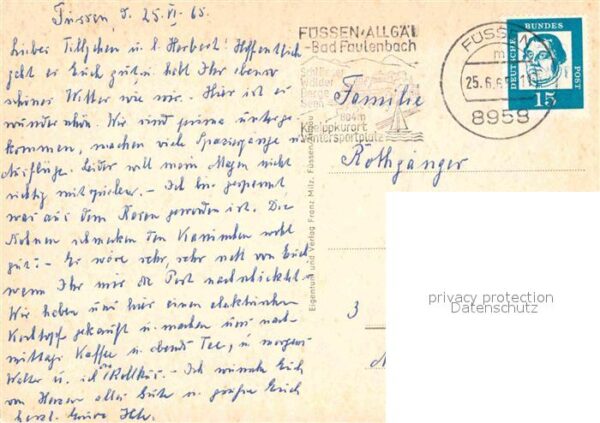 Füssen, d. 25. VI. 65
Liebes Tillychen u. l. Herbert! Hoffentlich
geht es Euch gut u. habt Ihr ebenso
schönes Wetter wie wir. - Hier ist es
wunderschön. Wir sind prima unterge-
kommen, machen viele Spaziergänge u.
Ausflüge. Leider will mein Magen nicht
richtig mitspielen. - Ich bin gespannt
was aus dem Rasen geworden ist. Die
schmecken den Kaninchen wohl
gut. - Es wäre sehr, sehr nett von Euch
wenn Ihr mir die Post nachschicktet.
Wir haben uns hier einen elektrischen
Kochtopf gekauft u. machen uns nach-
mittags Kaffee u. abends Tee, u. morgens
u. ich Ich wünsche Euch
von Herzen alles Gute u. grüße Euch
herzl. Eure
FÜSSEN/ALLGÄU
-Bad Faulenbach
Schlösser
Wälder
Berge
Seen
804m
Kneippkurort
Wintersportplatz
FÜSSEN
25.6.6
8958
DEUTSCHE BUNDESPOST
15
Familie
Röthganger
3
Eigentum und Verlag Franz Milz, Füssen-Allgäu
privacy protection
Datenschutz